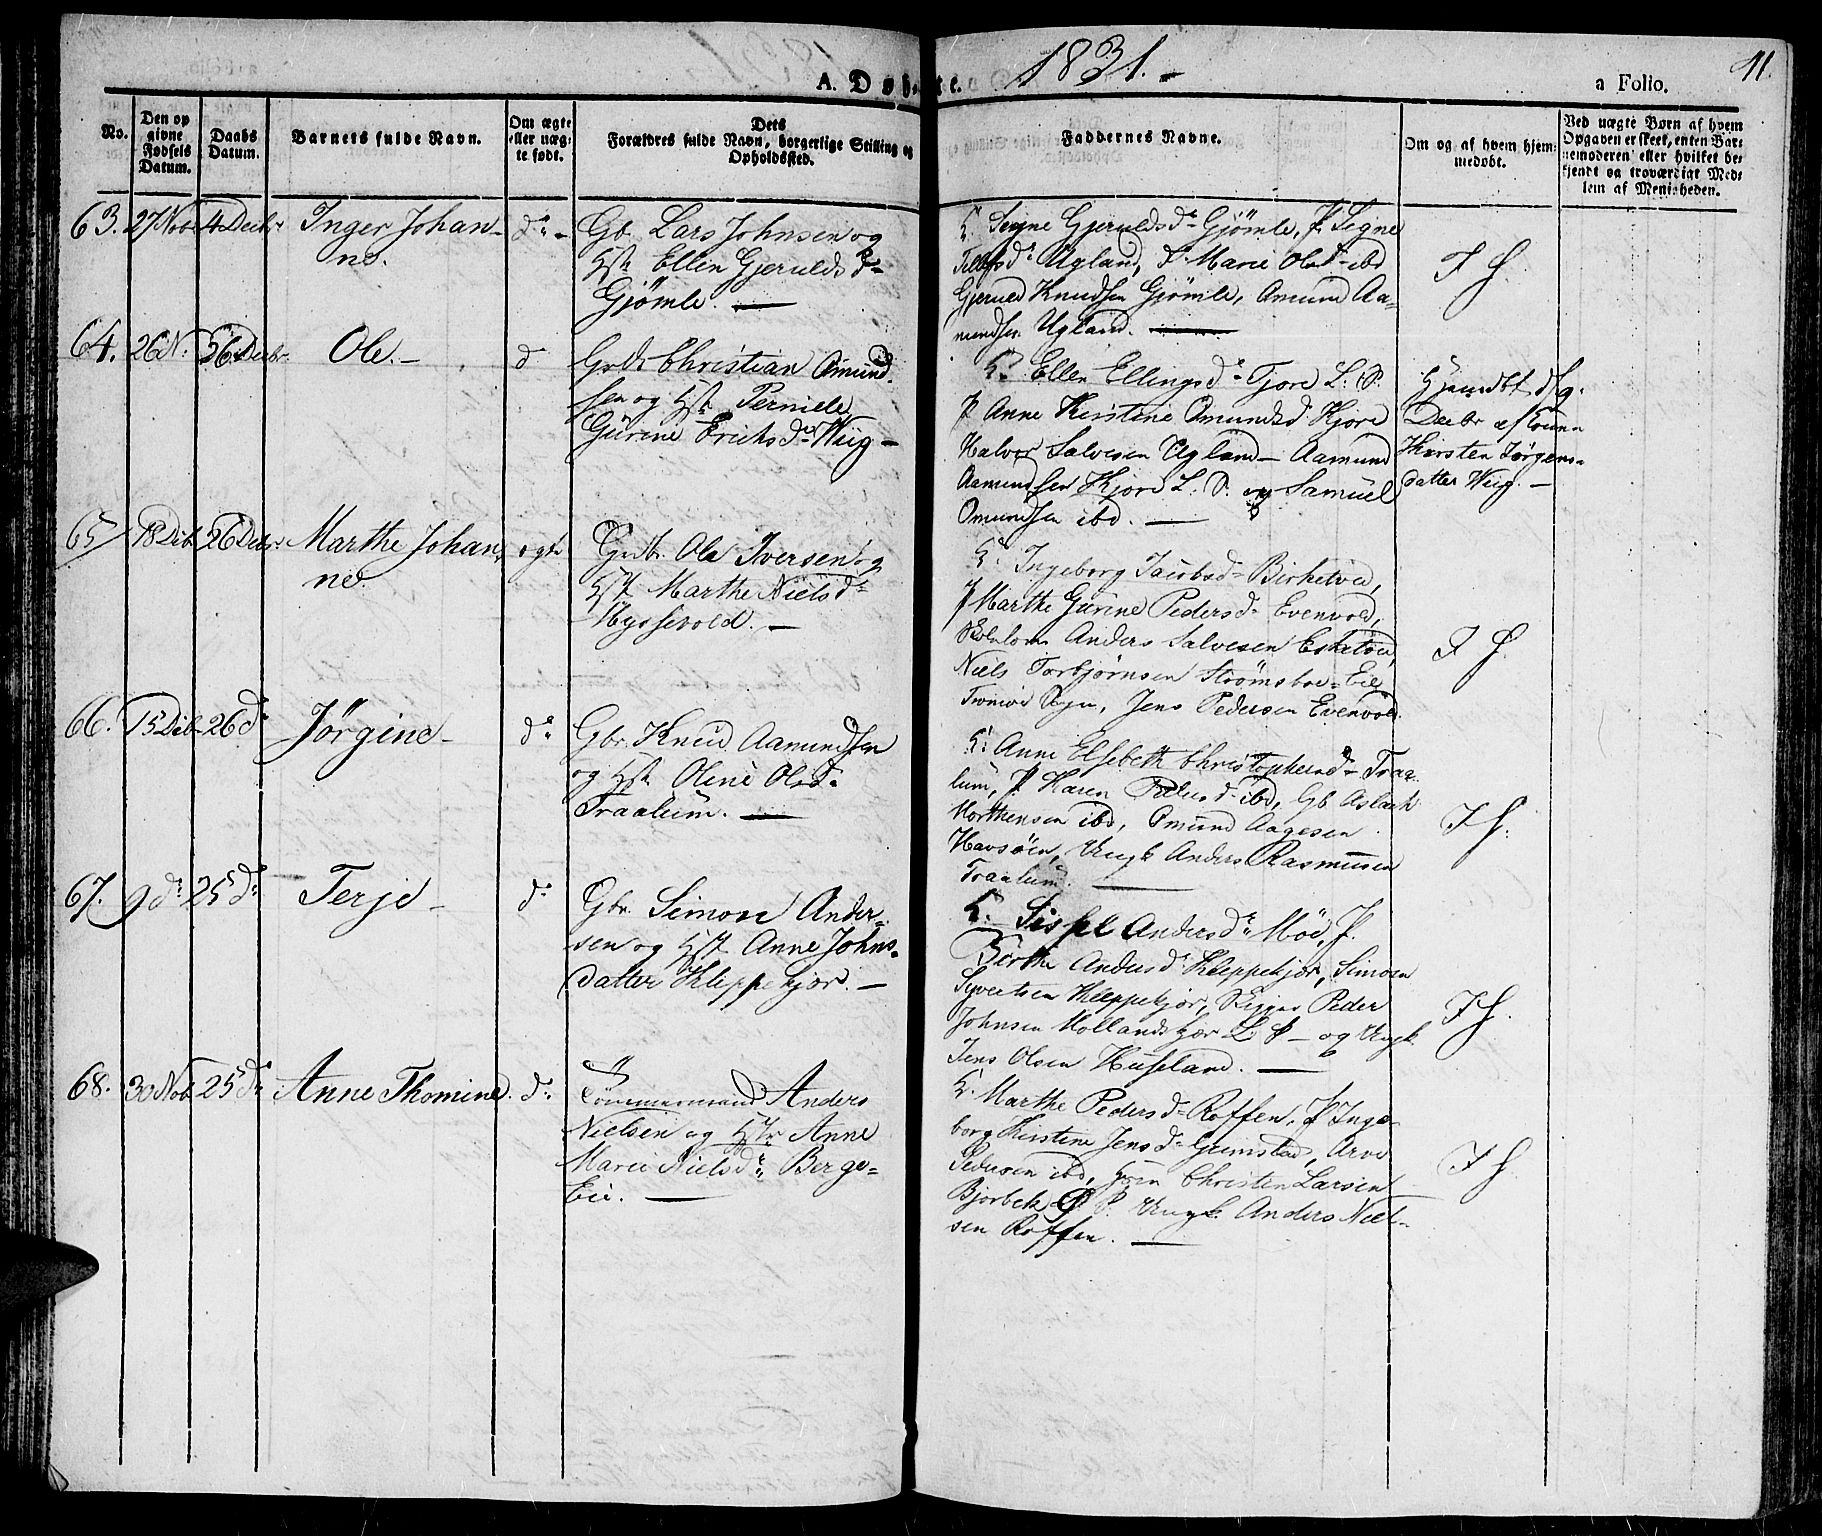 A. Døbte.
1831.
a Folio.
11.
No.
Den op
givne
Fødsels
Datum.
Daabs
Datum.
Barnets fulde Navn.
Om ægte
eller uæg-
te født.
Dets
Forældres fulde Navn, borgerlige Stilling og
Opholdssted.
Faddernes Navne.
Om og af hvem hjem-
medøbt.
Ved uægte Børn af hvem
Opgaven er skeet, enten Bar-
nemoderen eller hvilket be-
kjendt og troværdigt Med-
lem af Menigheden.
63. 27 Nob. 4 Decbr Inger Johan-
ne.
do -
Gb. Lars Johnsen og
Hst. Ellen Gjeruldsd
Gjömle.
K. Signe Gjeruldsd Gjömle, P. Signe
Ugland, P. Marie Olsd ibd
Gjeruld Knudsen Gjömle, Amund Aa-
mundsen Ugland.
F H
64. 26 N. 26 Decbr. Ole.
d
Christian Omund-
sen og Hst. Pernille
Gurine Erichsd Wiig
K. Ellen Ellingsd Fjore L. S.
P. Anne Kirstine Omundsd Kjore
Halvor Salvesen Ugland - Aamund
Aamundsen Kjore L. S. og Samuel
Omundsen ibd.
Hjemdbt d. 9.
Decbr af
Kirsten Jörgens-
datter Wiig.
65 18 Dcb. 26 Decbr. Marthe Johan-
ne
ægte
Gdbr. Ole Iversen og
Hst. Marthe Nielsd
Myssevold.
K. Ingeborg Jacobsd Birketved,
P. Marthe Gurine Pedersd Evenvold,
Anders Salvesen
Niels Torbjörnsen Strömsboe-Eie
Jens Pedersen Evenvold.
F H.
66. 15 Dcb. 26 d Jørgine
do
Gbr. Knud Aamundsen
og Hst. Olene Olsd
Traalum.
K. Anne Elsebeth Christophersd Traa-
lum, P. Karen Pedersd ibd, Gb Aslach
Morthensen ibd, Omund Aagesen
Havsöen, Ungk Anders Rasmusen
Traalum.
F H.
67. 9 d. 25 d Terje
d
Gbr. Simon Ander-
sen og Hst. Anne Johns-
datter Kleppekjær.
K. Sissel Andersd Möe, P.
Birthe Andersd Kleppekjær, Simon
Syvertsen Kleppekjær, Peder
Johnsen Hollandskjær L. S. - og Ungk
Jens Olsen Huseland.
F H.
68. 30 Nob. 25 d Anne Thomine.
do
Tömmermand Anders
Nielsen og Hst Anne
Marie Nielsd Berge-
Eie.
K. Marthe Pedersd Roffen, P. Inge-
borg Kirstine Jensd Grimstad, Arve
Pedersen ibd, Christen Larsen
Bjorbek Ungk. Anders Niel-
sen Roffen.
F H.